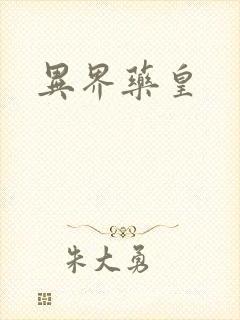 異界藥皇
朱大勇